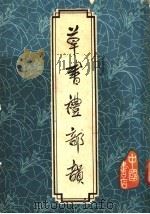 草書禮部韻
中國書店